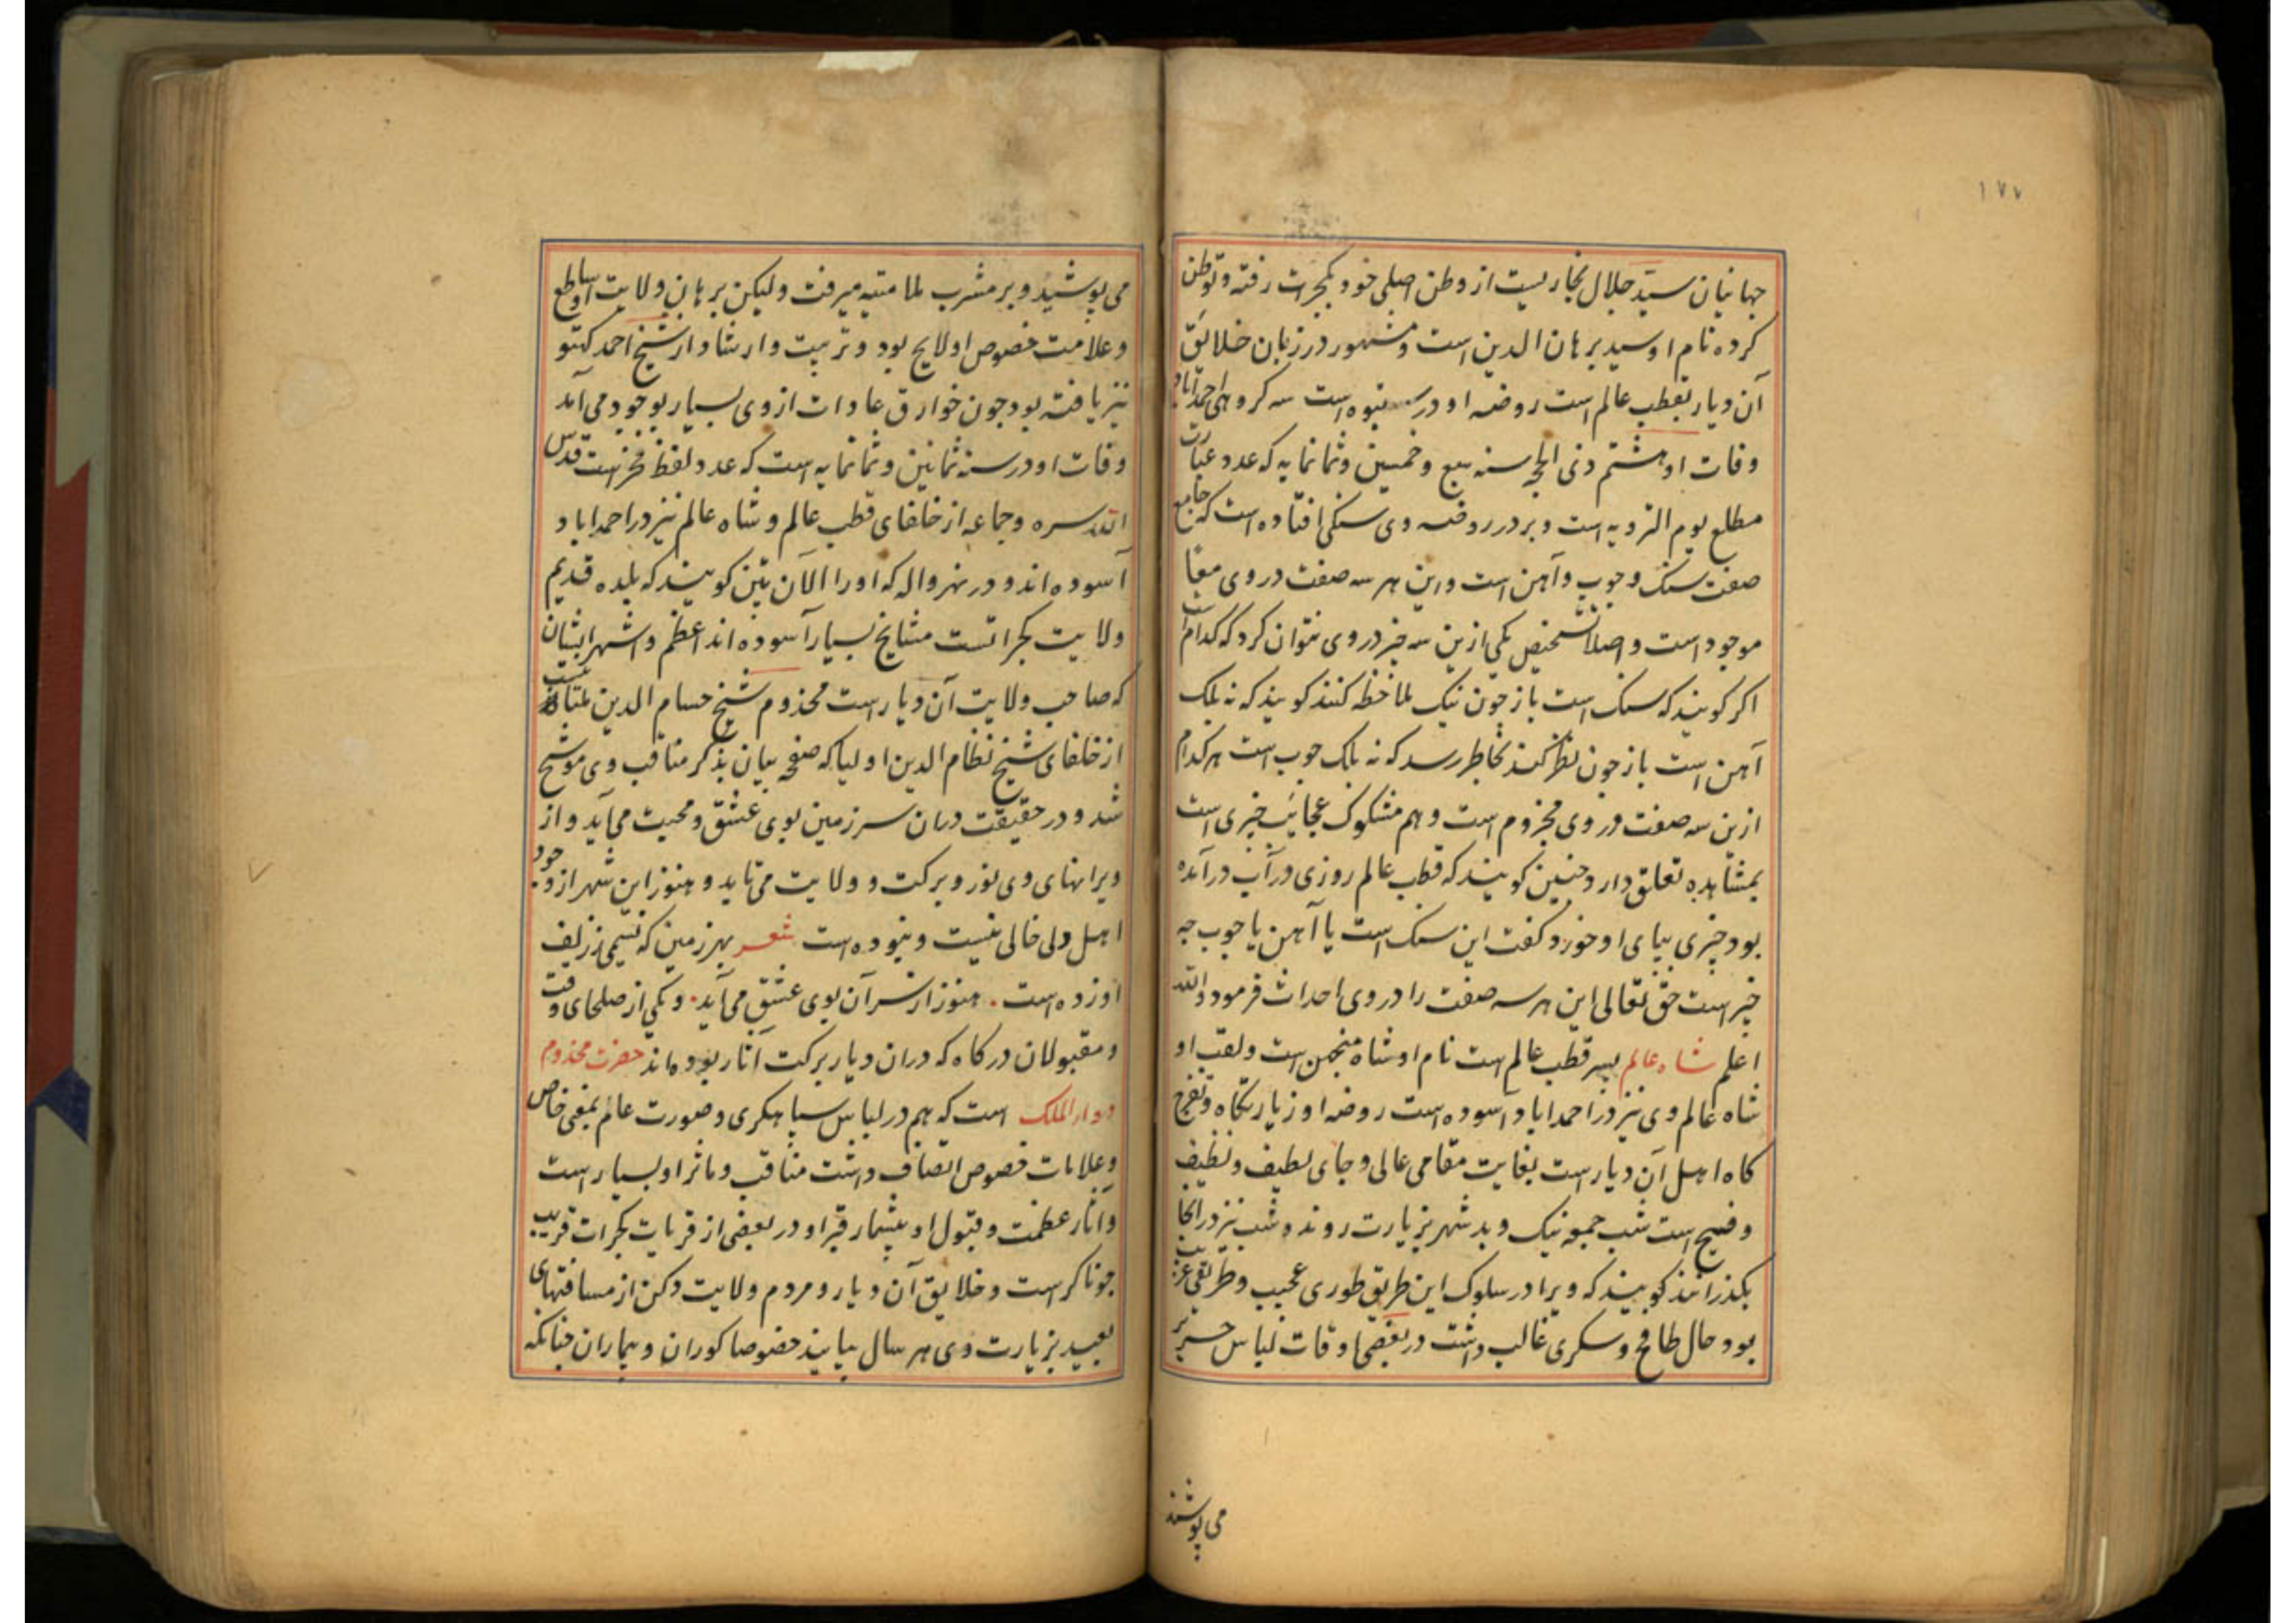 ۱۷۷
جهانیان سید جلال بخاریست از وطن اصلی خود بکجرات رفته و توطن
کرده نام او سید برهان الدین است و مشهور در زبان خلائق
آن دیار بقطب عالم است روضه او در بتبوه است سه کروهی احمداباد
وفات او هشتم ذی الحجه سنه سبع و خمسین و ثمانمایه که عدد عبارت
مطلع یوم الترویه است و بر در روضه وی سنکی افتاده است که جامع
صفت سنک و چوب و آهن است و این هر سه صفت در وی معا
موجود است و اصلا تشخیص یکی ازین سه چیز در وی نتوان کرد که کدام است
اکر کویند که سنک است باز چون نیک ملاحظه کنند کویند که نه بلک
آهن است باز چون نظر کنند بخاطر رسد که نه بلک چوب است هر کدام
ازین سه صفت در وی مجزوم است و هم مشکوک عجائب چیزی است
بمشاهده تعلق دارد چنین کویند که قطب عالم روزی در آب در آمده
بود چیزی بپای او خورد کفت این سنک است یا آهن یا چوب چه
چیز است حق تعالی این هر سه صفت را در وی احداث فرمود والله
اعلم شاه عالم پسر قطب عالم است نام او شاه منجهن است و لقب او
شاه عالم وی نیز در احمداباد آسوده است روضه او زیارتکاه و تفرج
کاه اهل آن دیار است بغایت مقامی عالی و جای لطیف و نظیف
و فسیح است شب جمعه نیک و بد شهر بزیارت روند و شب نیز در انجا
بکذرانند کویند که ویرا در سلوک این طریق طوری عجیب و طریقی غریب
بود حال طافح و سکری غالب داشت در بعضی اوقات لباس حریر
می پوشید
می پوشید و بر مشرب ملامتیه میرفت ولیکن برهان ولایت او ساطع
و علامت خصوص او لایح بود و تربیت و ارشاد از شیخ احمد کهتو
نیز یافته بود چون خوارق عادات از وی بسیار بوجود می آمد
وفات او در سنه ثمانین و ثمانمایه است که عدد لفظ فخر است قدس
الله سره و جماعه از خلفای قطب عالم و شاه عالم نیز در احمداباد
آسوده اند و در نهرواله که او را الآن پتن کویند که بلده قدیم
ولایت کجراتست مشایخ بسیار آسوده اند اعظم و اشهر ایشان
که صاحب ولایت آن دیار است مخدوم شیخ حسام الدین ملتانیست
از خلفای شیخ نظام الدین اولیا که صفحه بیان بذکر مناقب وی موشح
شد و در حقیقت دران سرزمین بوی عشق و محبت می آید و از
ویرانهای وی نور و برکت و ولایت می تابد و هنوز این شهر از وجود
اهل دلی خالی نیست و نبوده است شعر بهر زمین که نسیمی ز زلف
او زده است . هنوز از سر آن بوی عشق می آید . و یکی از صلحای وقت
و مقبولان درکاه که دران دیار برکت آثار بوده اند حضرت مخدوم
دوار الملک است که هم در لباس سپاهکری و صورت عام بمعنی خاص
و علامات خصوص اتصاف داشت مناقب و ماثر او بسیار است
و آثار عظمت و قبول او بیشمار قبر او در بعضی از قریات کجرات قریب
جوناکر است و خلایق آن دیار و مردم ولایت دکن از مسافتهای
بعید بزیارت وی هر سال بیایند خصوصا کوران و بیماران چنانکه